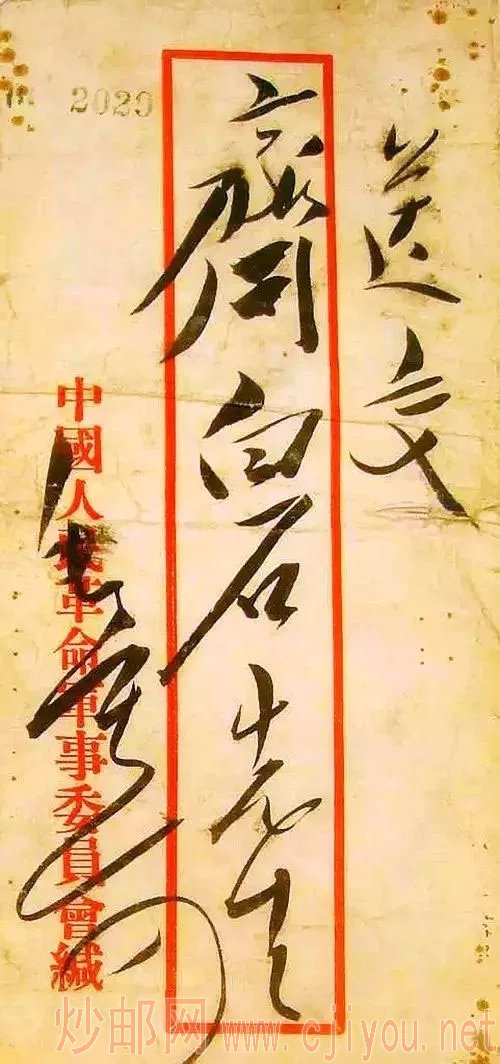 2029
送交
齊白石先生
中國人民革命軍事委員會緘
炒邮网www.cjiyou.net